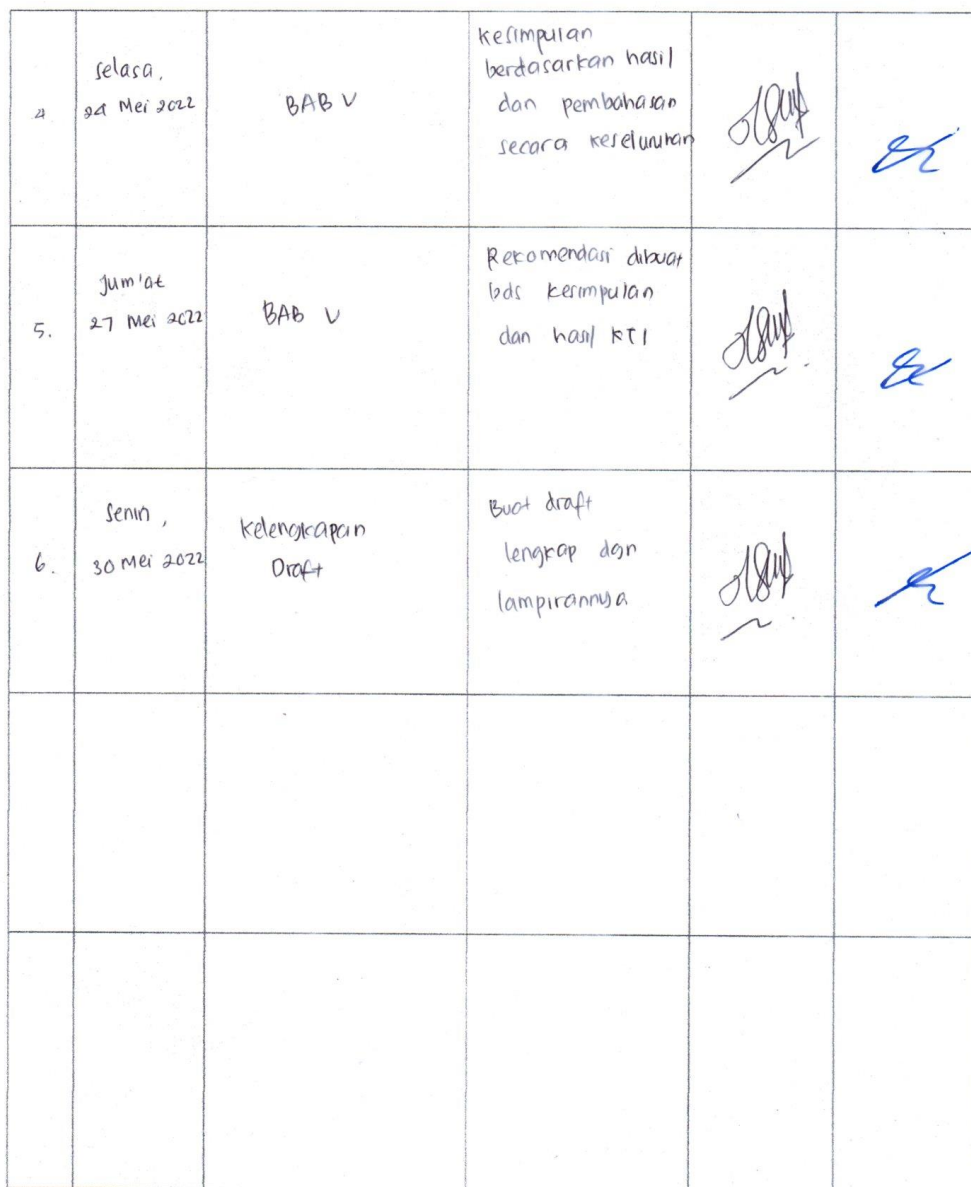 4
selasa,
24 Mei 2022
BAB V
kesimpulan
berdasarkan hasil
dan pembahasan
secara keseluruhan
5.
Jum'at
27 Mei 2022
BAB V
Rekomendasi dibuat
bds kesimpulan
dan hasil KTI
6.
Senin,
30 Mei 2022
kelengkapan
Draft
Buat draft
lengkap dgn
lampirannya